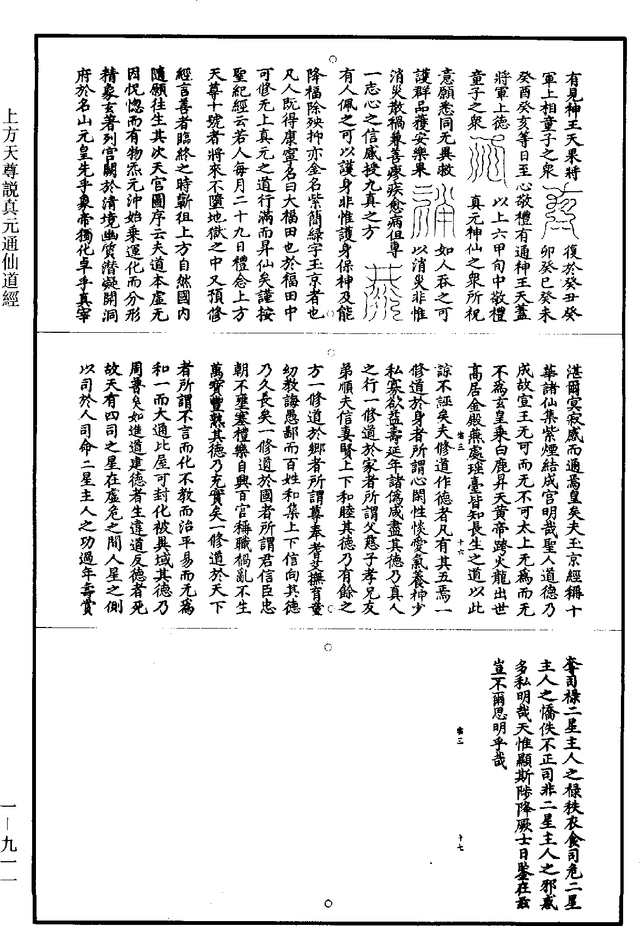 上方天尊説真元通仙道經
一—九一一
有見神王天眾將
軍上相童子之衆
復於癸丑癸
卯癸巳癸未
癸酉癸亥等日至心敬禮有通神王天蓋
將軍上德
童子之衆
以上六甲旬中敬禮
真元神仙之衆所祝
意願悉同无異救
護群品獲安樂果
如人吞之可
以消災非惟
消災散禍兼善療疾愈病但專
一志心之信感授九真之方
有人佩之可以護身非惟護身保神及能
降福除殃抑亦金名紫簡綠字玉京者也
凡人既得康寧名曰大福田也於福田中
可修无上真元之道行滿而昇仙矣謹按
聖紀經云若人每月二十九日禮念上方
天尊十號者將來不墮地獄之中又預修
經言善者臨終之時斬徂上方自然國內
隨願往生其次天官圖序云夫道本虛无
因恍惚而有物炁元沖始乘運化而分形
精象玄著列宮闕於清境幽質潛凝開洞
府於名山元皇先乎象帝獨化卓乎真宰
湛爾冥寂感而通焉皇矣夫玉京經稱十
華諸仙集紫煙結成宮明哉聖人道德乃
成故宣王无可而无不可太上无爲而无
不爲玄皇乘白鹿昇天黃帝跨火龍出世
高居金殿燕處瑤臺皆知長生之道以此
諒不誣矣夫修道作德者凡有其五焉一
修道於身者所謂心閑性惔愛氣養神少
私寡欲益壽延年諸僞咸盡其德乃真人
之行一修道於家者所謂父慈子孝兄友
弟順夫信妻賢上下和睦其德乃有餘之
方一修道於鄉者所謂尊奉耆艾撫育童
幼教誨愚鄙而百姓和集上下信向其德
乃久長矣一修道於國者所謂君信臣忠
朝不壅塞禮樂自興百官稱職禍亂不生
萬寶豐熟其德乃充實矣一修道於天下
者所謂不言而化不教而治平易而无爲
和一而大通比屋可封化被異域其德乃
周普矣如進道建德者生違道反德者死
故天有四司之星在虛危之間人星之側
以司於人司命二星主人之功過年壽賞
罰司祿二星主人之祿秩衣食司危二星
主人之憍佚不正司非二星主人之邪惑
多私明哉天惟顯斯陟降厥士日鑒在茲
豈不爾思明乎哉